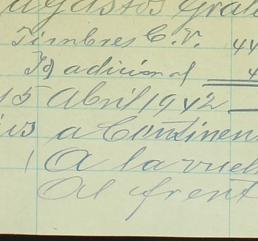 gastos grat
Timbres C.V. 44
Id adicional 4
15 abril 1942
a Continen
A la vuel
Al frent